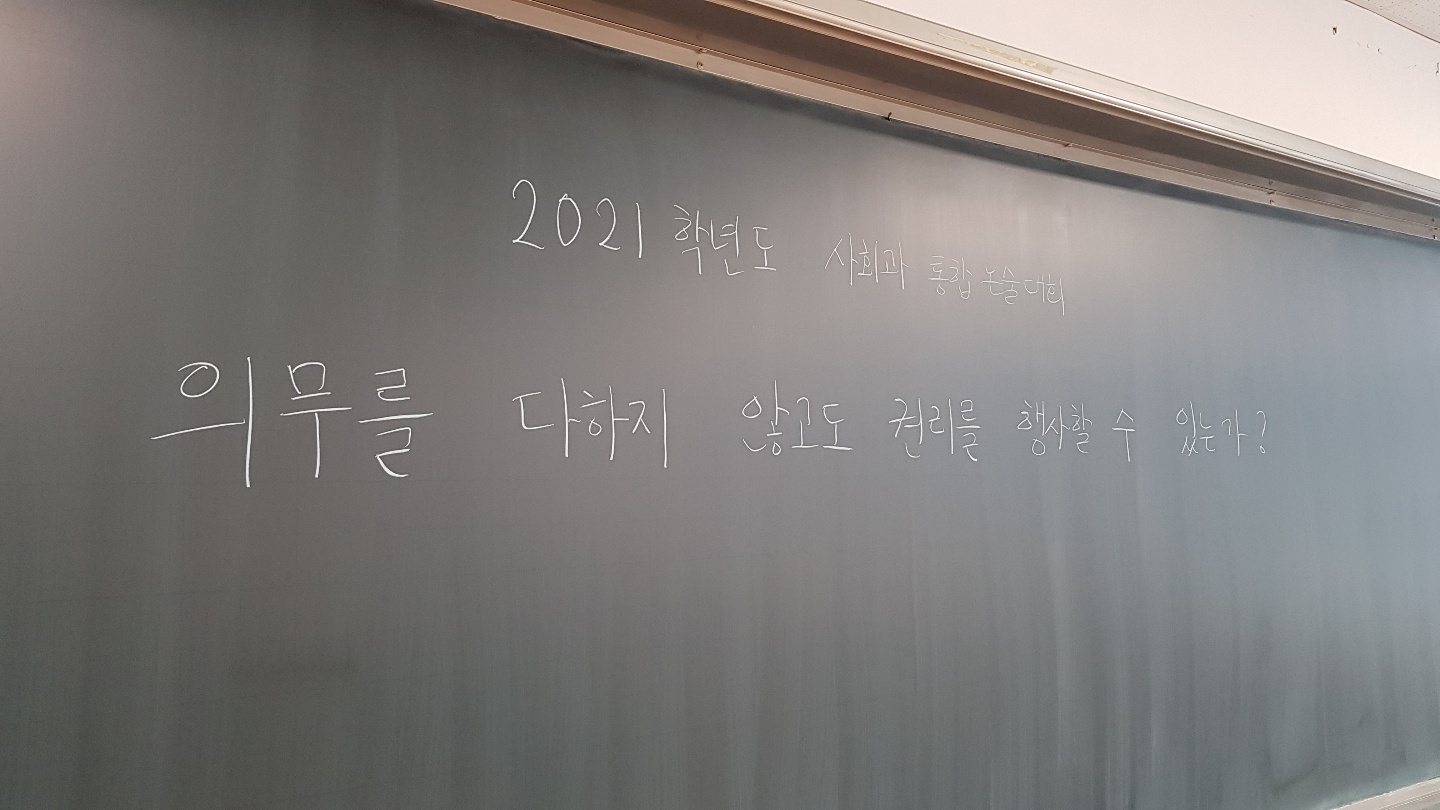 2021 학년도 사회과 통합 논술대회
의무를 다하지 않고도 권리를 행사할 수 있는가?